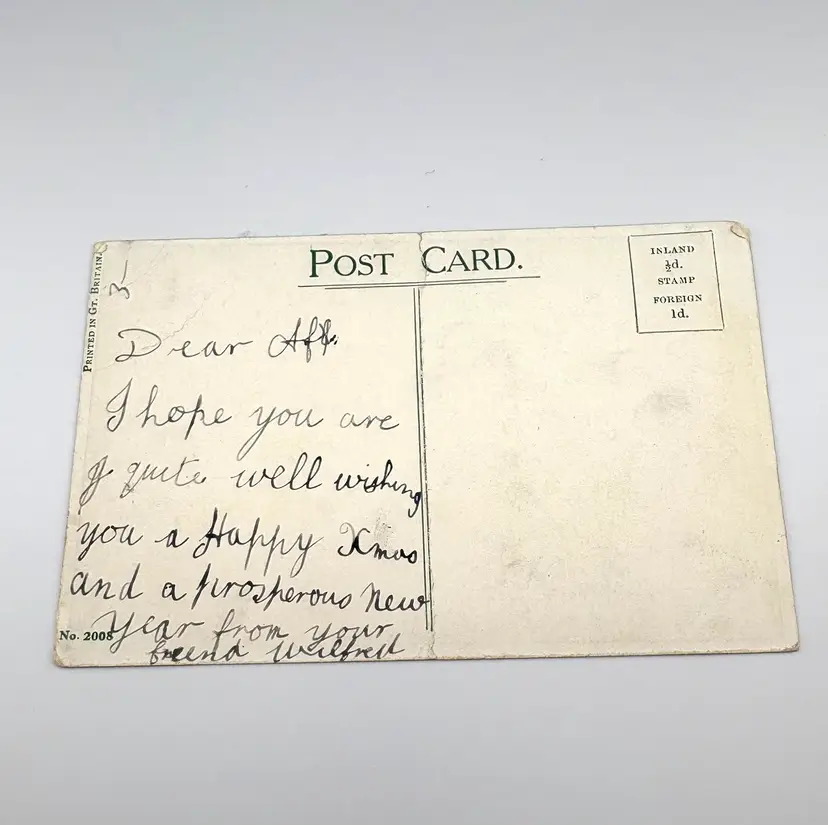 POST CARD.
INLAND
½d.
STAMP
FOREIGN
1d.
PRINTED IN GT. BRITAIN.
3-
Dear Alf.
I hope you are
quite well wishing
you a Happy Xmas
and a prosperous New
Year from your
friend Wilfred
No. 2008